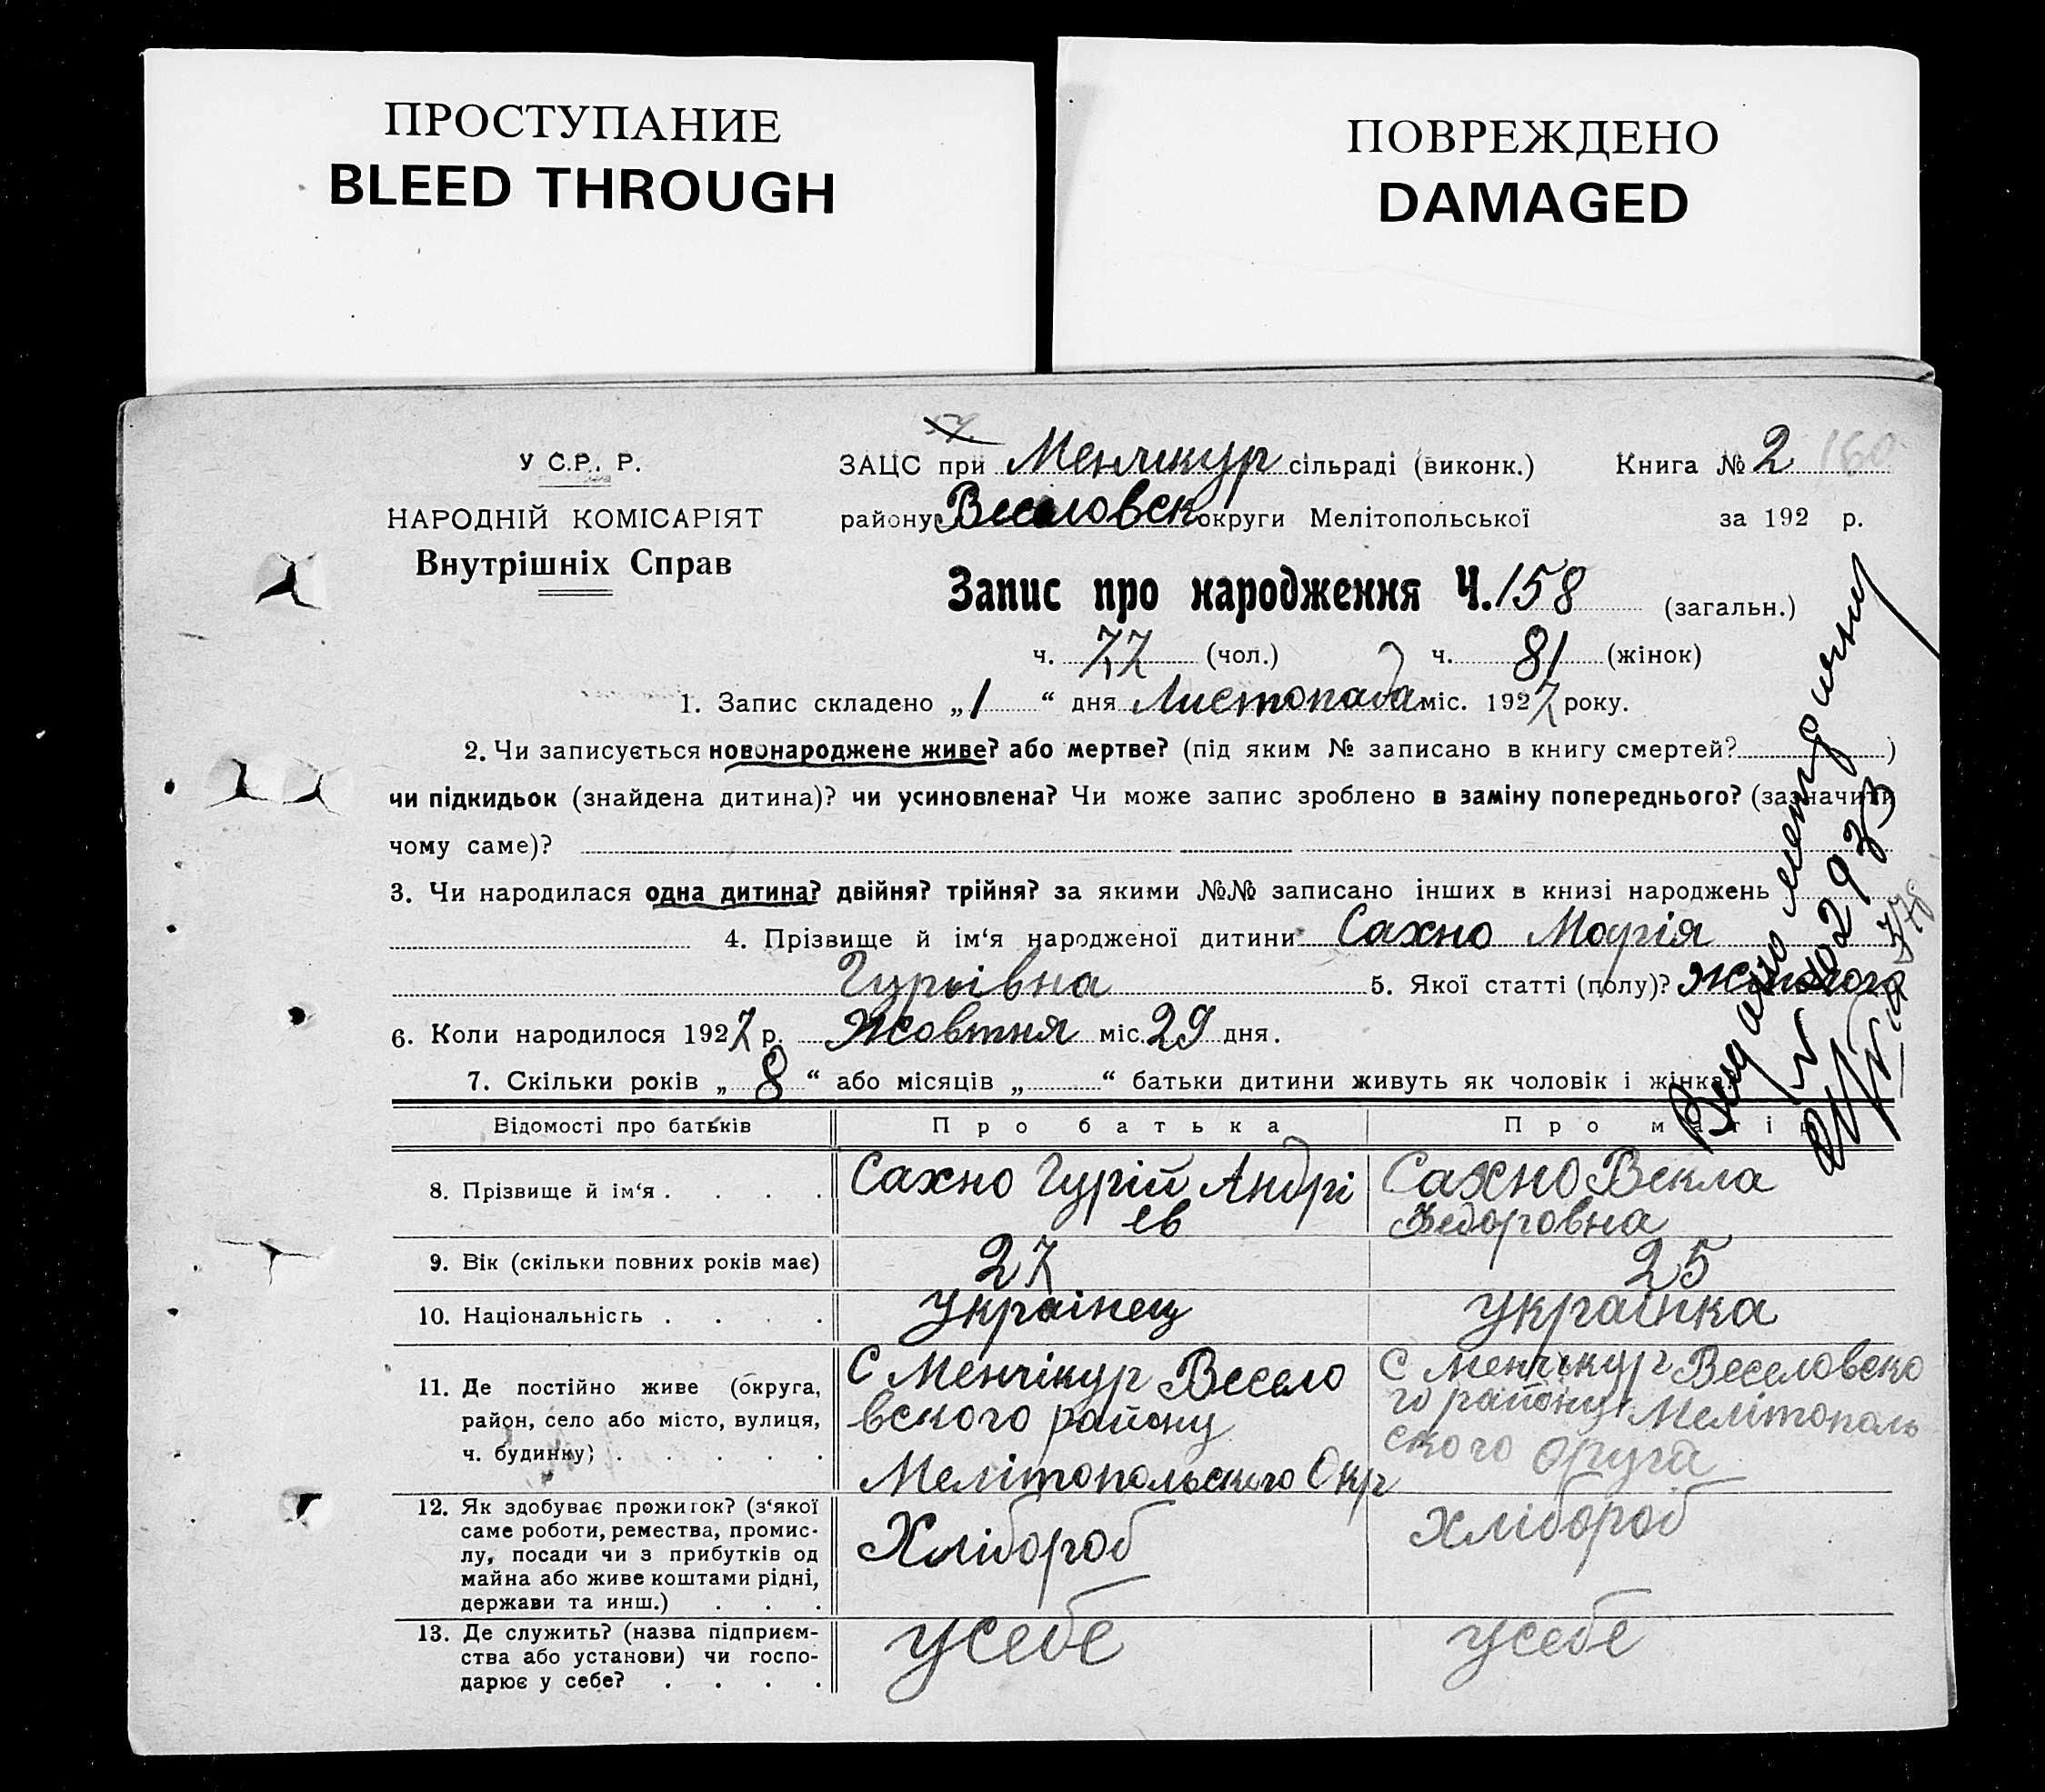 ПРОСТУПАНИЕ
BLEED THROUGH
ПОВРЕЖДЕНО
DAMAGED
У С.Р.Р.
НАРОДНІЙ КОМІСАРІЯТ
Внутрішніх Справ
ЗАЦС при Менчікур сільраді (виконк.) Книга № 2 160
району Веселовск округи Мелітопольської за 192 р.
Запис про народження Ч. 158 (загальн.)
ч. 77 (чол.) ч. 81 (жінок)
1. Запис складено „1“ дня Листопада міс. 1927 року.
2. Чи записується новонароджене живе? або мертве? (під яким № записано в книгу смертей? )
чи підкидьок (знайдена дитина)? чи усиновлена? Чи може запис зроблено в заміну попереднього? (зазначити
чому саме)?
3. Чи народилася одна дитина? двійня? трійня? за якими №№ записано інших в книзі народжень
4. Прізвище й ім‘я народженої дитини Сахно Марія
Гурьівна 5. Якої статті (полу)? Жіночого
6. Коли народилося 1927 р. Жовтня міс. 29 дня.
7. Скільки років „8“ або місяців „ “ батьки дитини живуть як чоловік і жінка?
Відомості про батьків Про батька Про матір
8. Прізвище й ім‘я . . . . Сахно Гурій Андрі Сахно Векла
ев Федоровна
9. Вік (скільки повних років має) 27 25
10. Національність . . . . Українец Українка
11. Де постійно живе (округа,
район, село або місто, вулиця,
ч. будинку) . . . . .
С Менчікур Весело
вского району
Мелітопольского Окр
С Менчікур Веселовско
го району Мелітополь
ского округа
12. Як здобуває прожиток? (з‘якої
саме роботи, ремества, промис-
лу, посади чи з прибутків од
майна або живе коштами рідні,
держави та инш.) . . .
Хлібороб Хлібороб
13. Де служить? (назва підприєм-
ства або установи) чи госпо-
дарює у себе? . . . .
усебе усебе
Видано метр